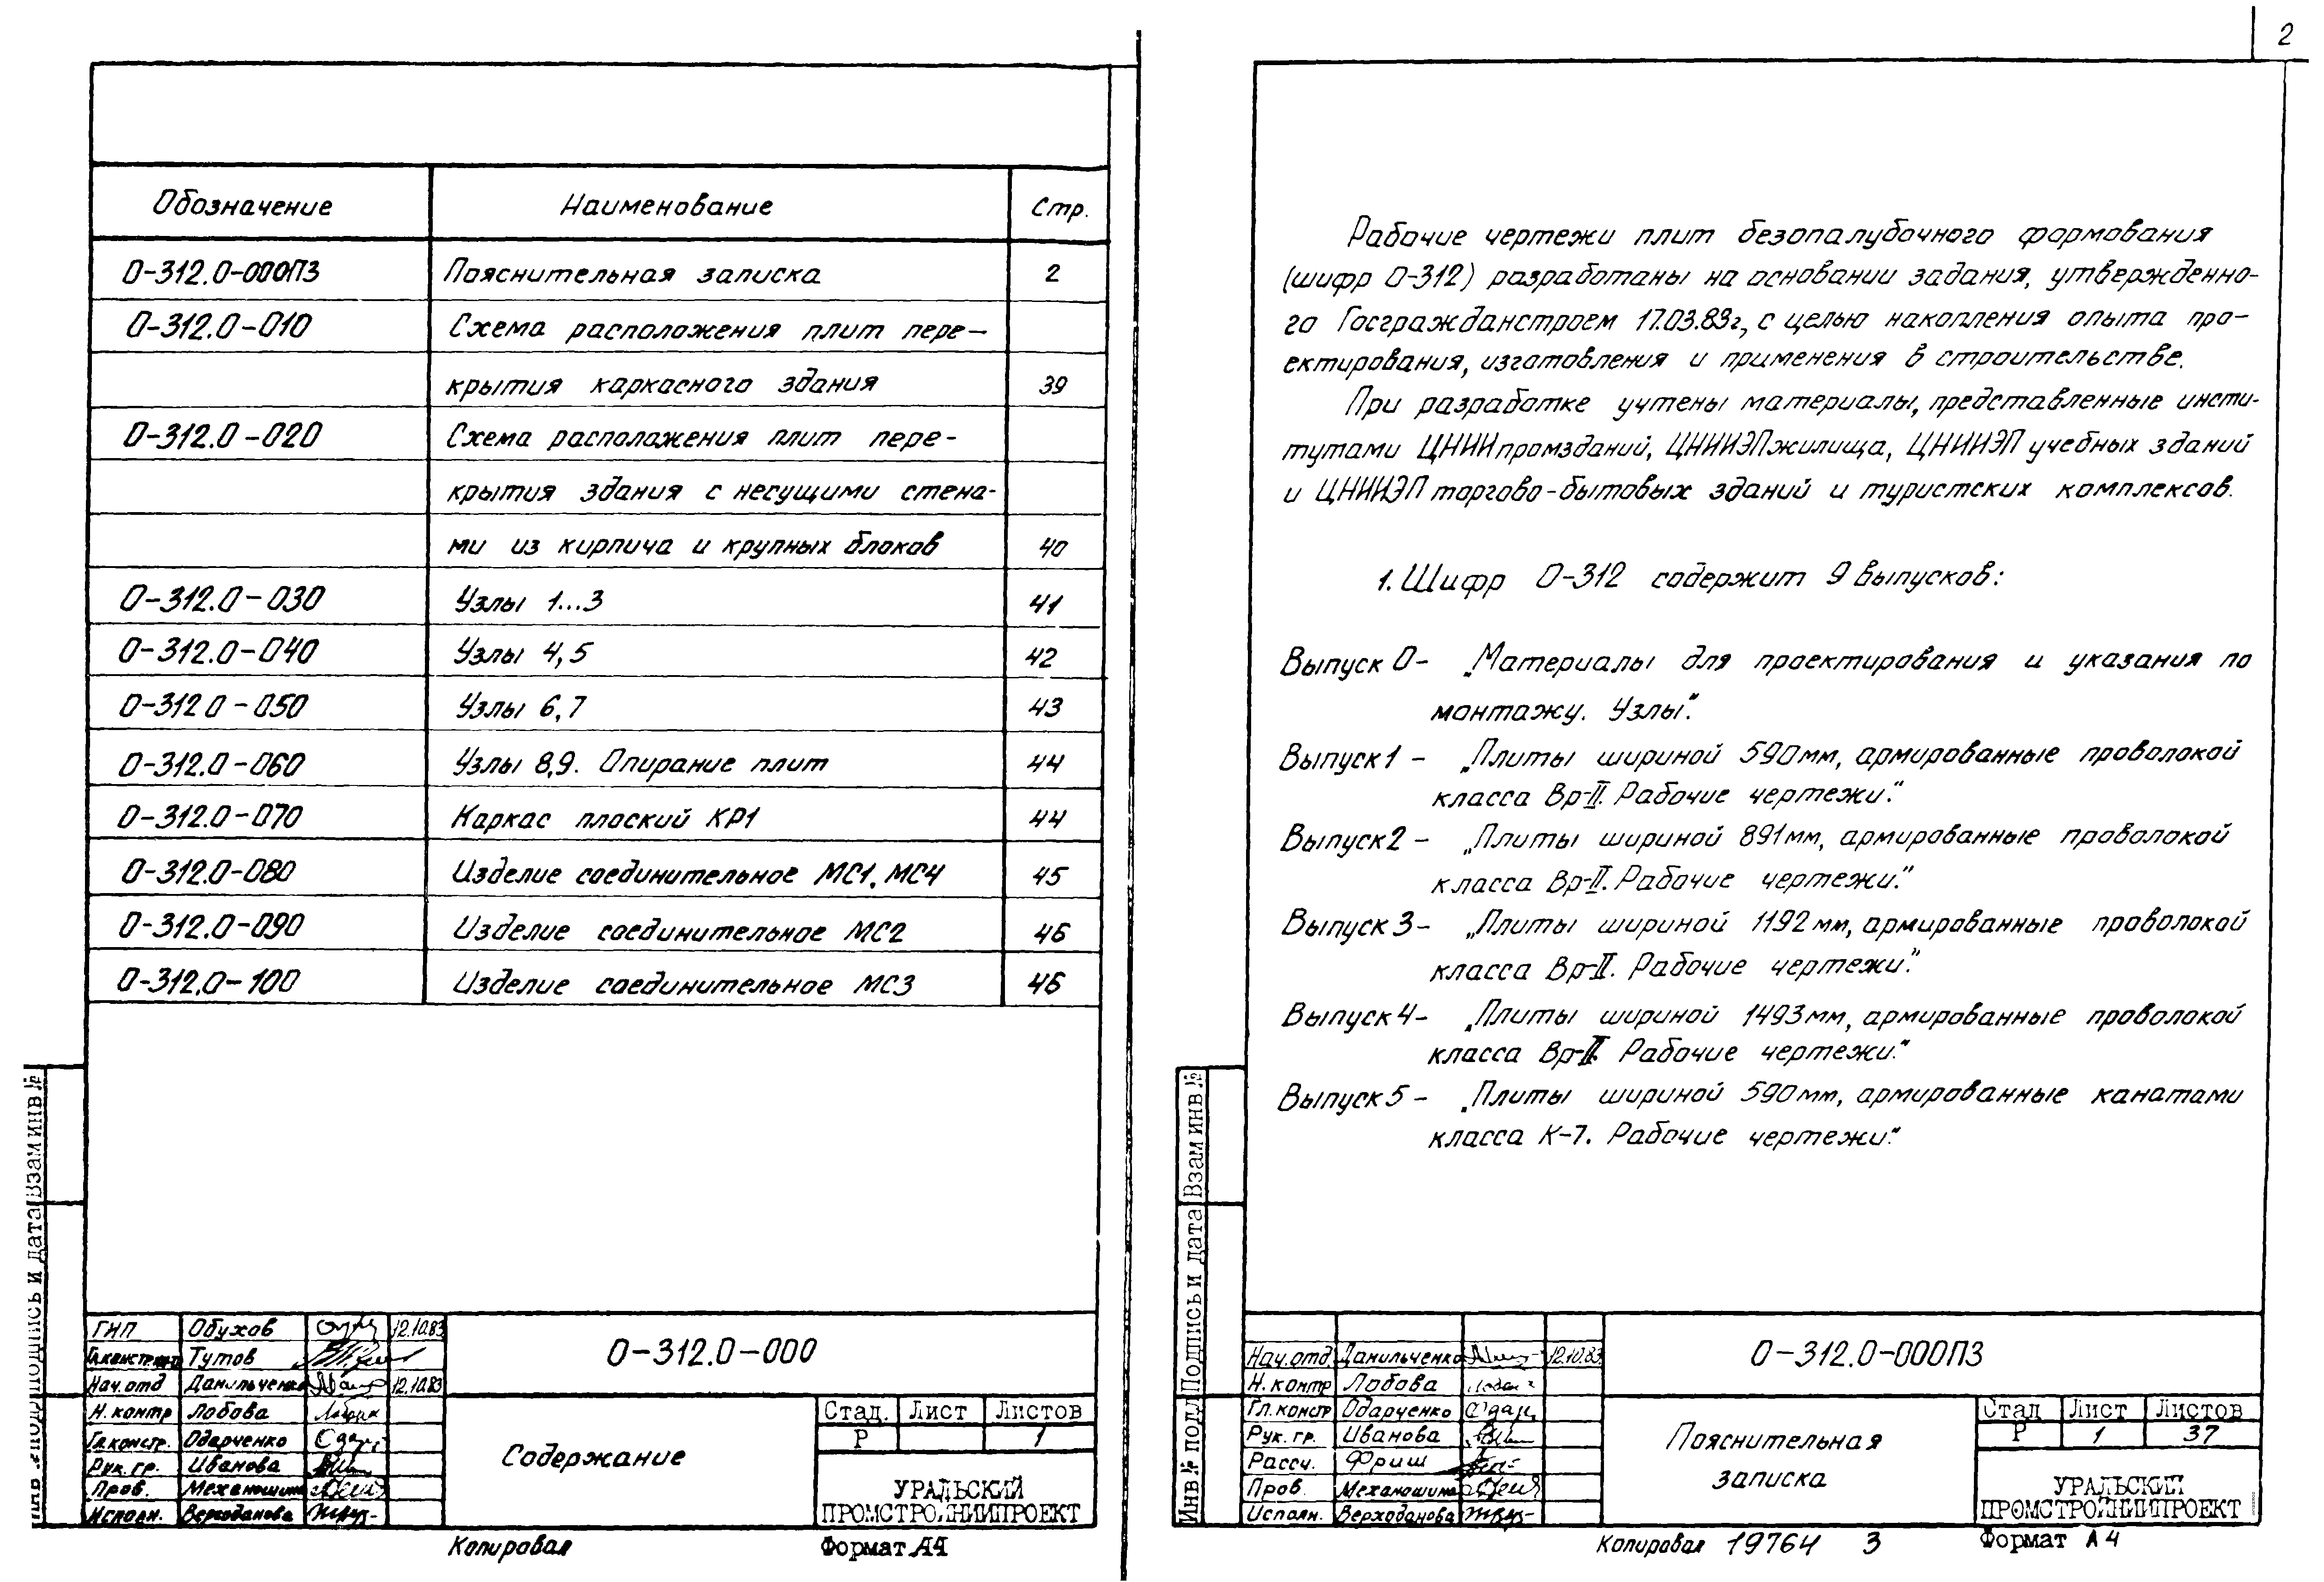 Обозначение Наименование Стр.
О-312.0-000ПЗ Пояснительная записка 2
О-312.0-010 Схема расположения плит пере-
крытия каркасного здания 39
О-312.0-020 Схема расположения плит пере-
крытия здания с несущими стена-
ми из кирпича и крупных блоков 40
О-312.0-030 Узлы 1...3 41
О-312.0-040 Узлы 4,5 42
О-312 0-050 Узлы 6,7 43
О-312.0-060 Узлы 8,9. Опирание плит 44
О-312.0-070 Каркас плоский КР1 44
О-312.0-080 Изделие соединительное МС1, МС4 45
О-312.0-090 Изделие соединительное МС2 46
О-312.0-100 Изделие соединительное МС3 46
Взам инв №
Подпись и дата
ГИП Обухов 12.10.83
Гл.констр. Тутов
Нач.отд Данильченко 12.10.83
Н.контр Лобова
Гл.констр. Одарченко
Рук.гр. Иванова
Пров. Механошина
Исполн. Верходанова
О-312.0-000
Содержание
Стад. Лист Листов
Р 1
УРАЛЬСКИЙ
ПРОМСТРОЙНИИПРОЕКТ
Копировал Формат А4
2
Рабочие чертежи плит безопалубочного формования
(шифр О-312) разработаны на основании задания, утвержденно-
го Госгражданстроем 17.03.83г, с целью накопления опыта про-
ектирования, изготовления и применения в строительстве.
При разработке учтены материалы, представленные инсти-
тутами ЦНИИпромзданий, ЦНИИЭПжилища, ЦНИИЭП учебных зданий
и ЦНИИЭП торгово-бытовых зданий и туристских комплексов.
1. Шифр О-312 содержит 9 выпусков:
Выпуск 0- „Материалы для проектирования и указания по
монтажу. Узлы".
Выпуск 1 - „Плиты шириной 590мм, армированные проволокой
класса Вр-II. Рабочие чертежи."
Выпуск 2 - „Плиты шириной 891мм, армированные проволокой
класса Вр-II. Рабочие чертежи."
Выпуск 3- „Плиты шириной 1192мм, армированные проволокой
класса Вр-II. Рабочие чертежи."
Выпуск 4- „Плиты шириной 1493мм, армированные проволокой
класса Вр-II Рабочие чертежи."
Выпуск 5 - „Плиты шириной 590мм, армированные канатами
класса К-7. Рабочие чертежи."
Взам инв №
Подпись и дата
Инв № подл
Нач.отд. Данильченко 12.10.83
Н.контр Лобова
Гл.констр Одарченко
Рук. гр. Иванова
Рассч. Фриш
Пров. Механошина
Исполн. Верходанова
О-312.0-000ПЗ
Пояснительная
записка
Стад Лист Листов
Р 1 37
УРАЛЬСКИЙ
ПРОМСТРОЙНИИПРОЕКТ
Копировал 19764 3 Формат А4